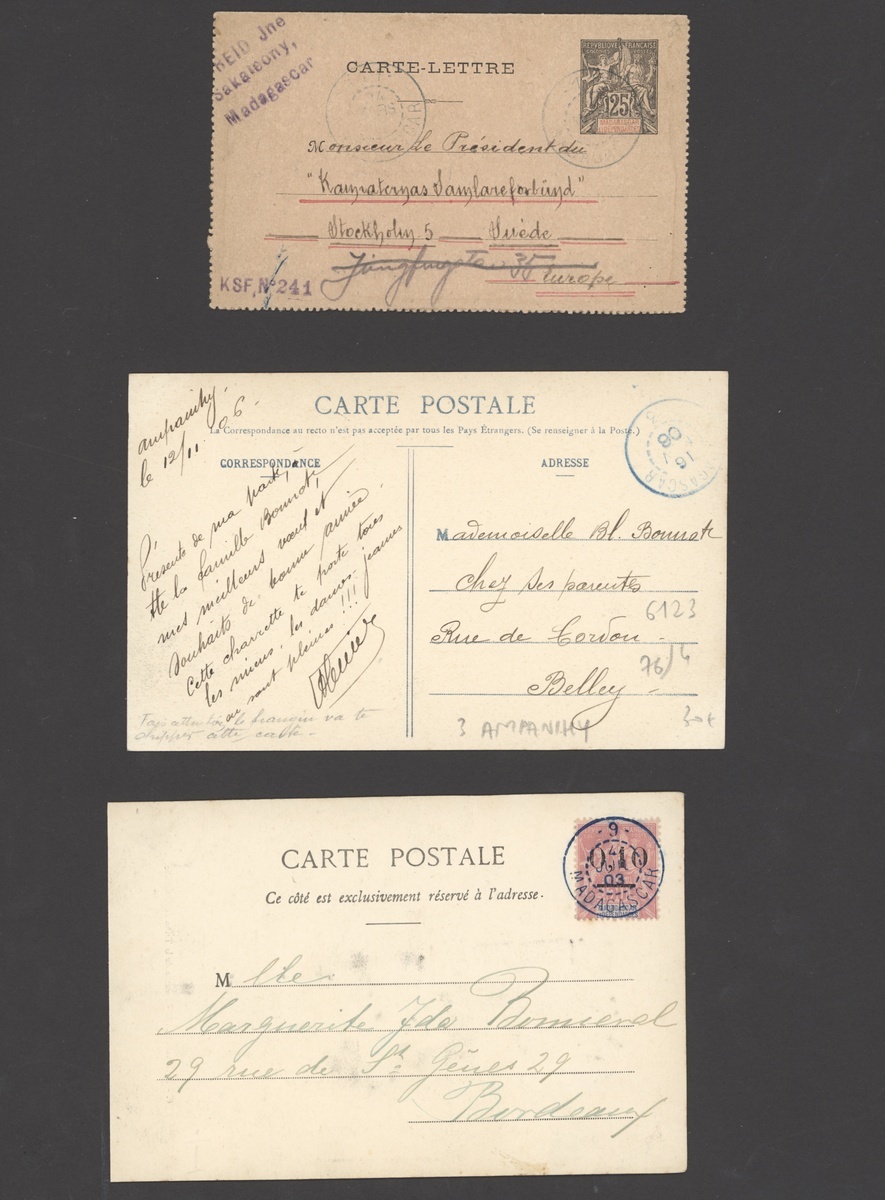 REID Jne
Sakaleony,
Madagascar
CARTE-LETTRE
REPUBLIQUE FRANÇAISE
25
Monsieur Le Président du
"Kamraternas Samlareforbünd"
Stockholm 5 Suède
35 Europe
KSF, No 241
ampanihy
le 12/11 06
CARTE POSTALE
La Correspondance au recto n'est pas acceptée par tous les Pays Étrangers. (Se renseigner à la Poste.)
CORRESPONDANCE
ADRESSE
Présente de ma part, à
tte la famille Bonnot,
mes meilleurs vœux et
souhaits de bonne année.
Cette charrette te porte tous
les miens, les dames-jeannes
en sont pleines!!!
Mademoiselle Bl. Bonnot
chez ses parents
Rue de Cordon
Belley
6123
76/4
3 AMPANIHY
30€
Fais attention, le francin va te
chipper cette carte
CARTE POSTALE
Ce côté est exclusivement réservé à l'adresse.
9
0,10
03
MADAGASCAR
M lle
Marguerite Ida
29 rue de St Génes 29
Bordeaux